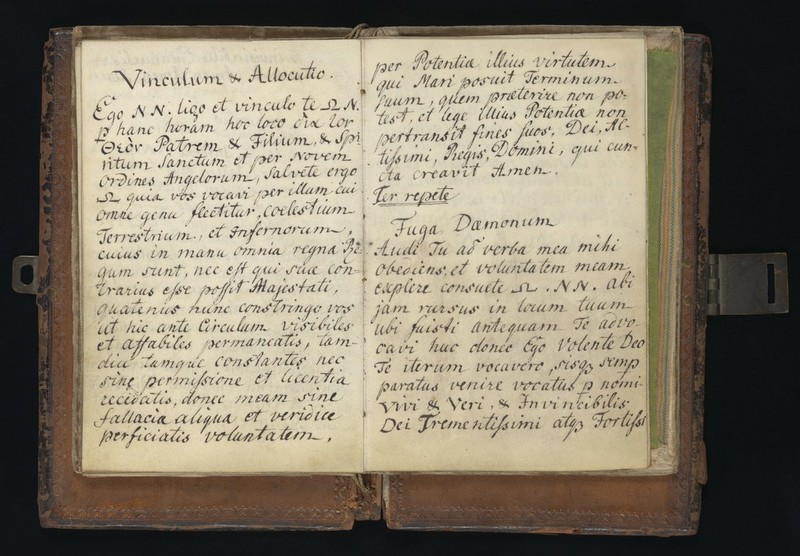 Vinculum & Allocutio.
Ego N N. ligo et vinculo te Ω N.
p hanc horam hoc loco
Patrem & Filium, & Spi
ritum Sanctum et per Novem
Ordines Angelorum, Salvete ergo
Ω quia vos vocavi per illum cui
omne genu flectitur, coelestium
Terrestrium, et Infernorum,
cuius in manu omnia regna Re-
gum sunt, nec est qui suæ con-
trarius esse possit Majestati,
quatenus hunc constringo vos
ut hic ante Circulum visibiles
et affabiles permaneatis, tam-
diu tamque constantes nec
sine permissione et licentia
recedatis, donec meam sine
fallacia aliqua et veridice
perficiatis voluntatem.
per Potentiæ illius virtutem
qui Mari posuit Terminum
suum, quem præterire non po-
test, et lege illius Potentiæ non
pertransit fines suos, Dei, Al-
tissimi, Regis, Domini, qui cun-
cta creavit Amen.
Ter repete
Fuga Dæmonum
Audi Tu ad verba mea mihi
obediens, et voluntatem meam
explere consuete Ω. N N. abi
jam rursus in locum tuum
ubi fuisti antequam Te advo-
cavi huc donec Ego Volente Deo
Te iterum vocavero, sisqz semp
paratus venire vocatus p nomi-
Vivi & Veri, & Invincibilis
Dei Trementissimi atqz Fortissi